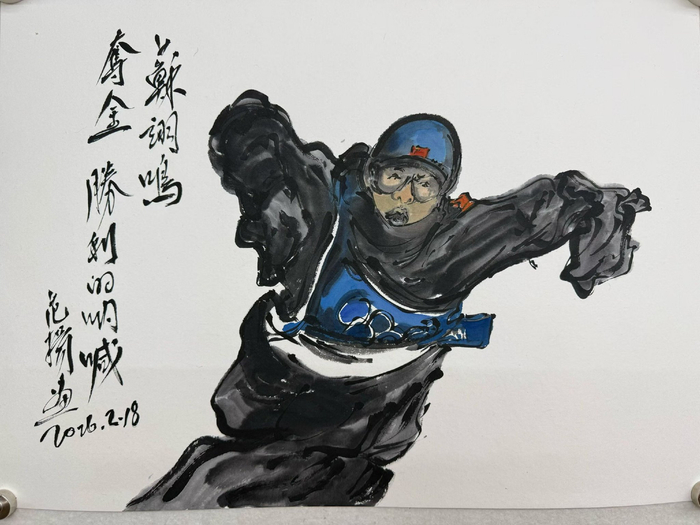 蘇翊鳴
奪金 勝利的吶喊
范揚畫
2026.2.18